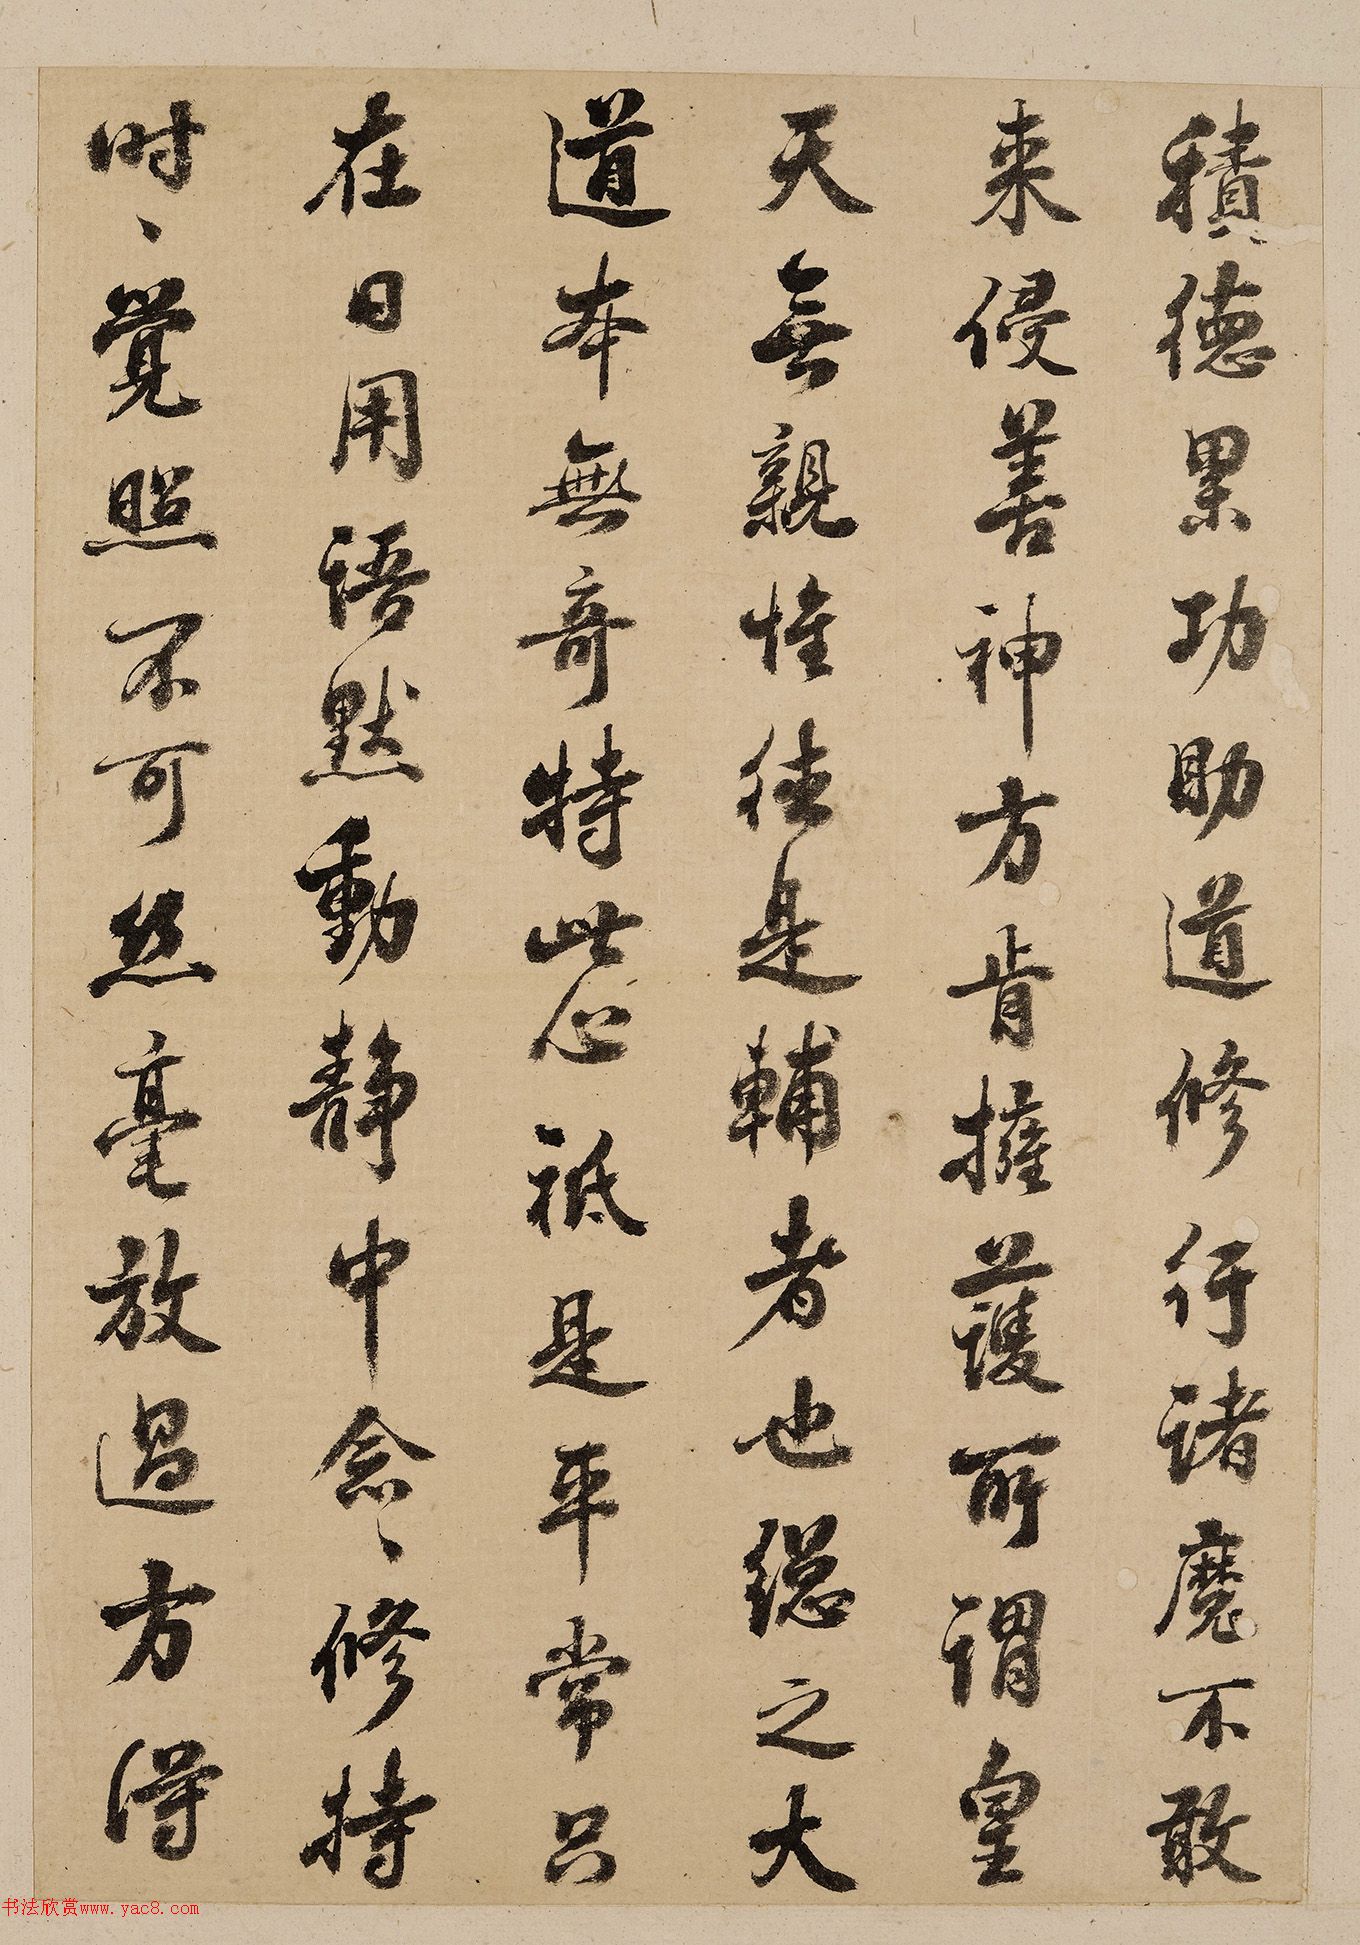 積德累功助道修行诸魔不敢
来侵善神方肯擁護所謂皇
天無親惟德是輔者也總之大
道本無奇特此心祗是平常只
在日用語默動靜中念〻修持
时〻覺照不可丝毫放過方得
书法欣赏www.yac8.com